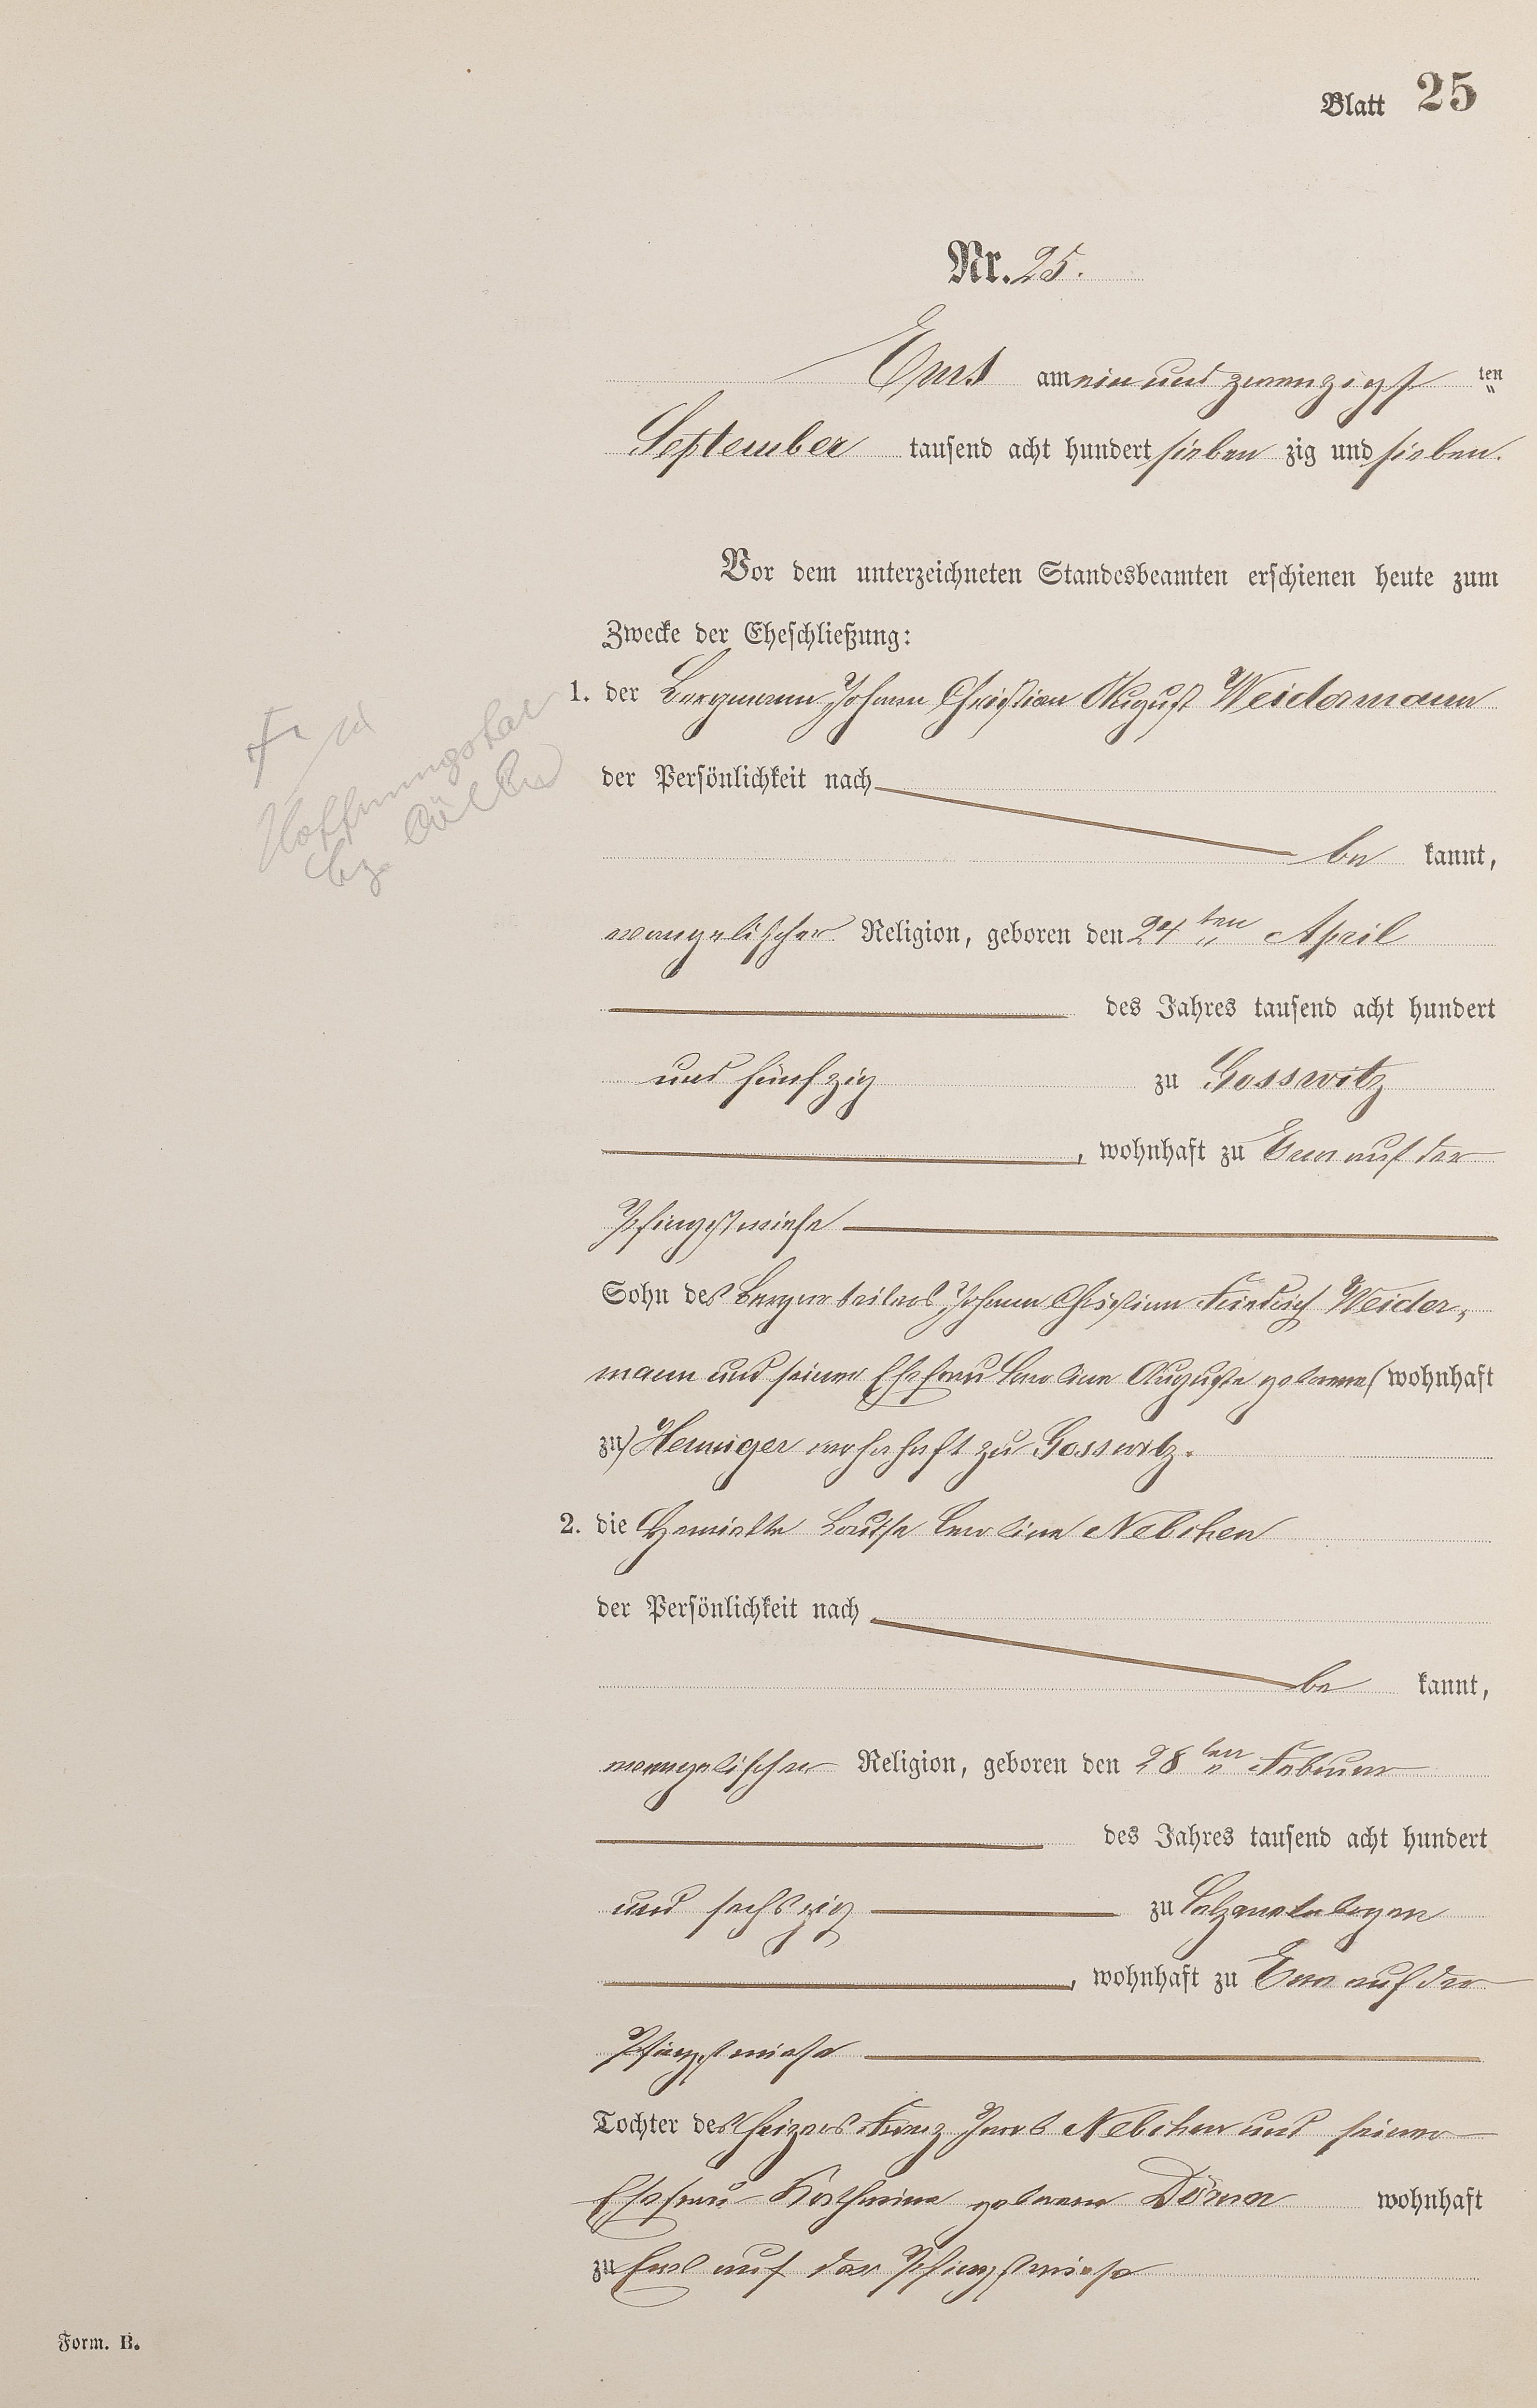 Blatt 25
Nr. 25.
Ems am ein und zwanzigst ten
September tausend acht hundert sieben zig und sieben.
Vor dem unterzeichneten Standesbeamten erschienen heute zum
Zwecke der Eheschließung:
1. der Bergmann Johann Christian August Weidermann
der Persönlichkeit nach
be kannt,
evangelischer Religion, geboren den 24ten April
des Jahres tausend acht hundert
und fünfzig zu Gosswitz
, wohnhaft zu Ems auf der
Pfingstwiese
Sohn des Johann Christian Friedrich Weider-
mann und seiner Ehefrau Caroline Auguste geborene (wohnhaft
zu) Henniger wohnhaft zu Gosswitz.
2. die Louise Caroline Nebchen
der Persönlichkeit nach
be kannt,
evangelischer Religion, geboren den 28ten Februar
des Jahres tausend acht hundert
und sechszig zu
, wohnhaft zu Ems auf der
Pfingstwiese
Tochter des Heizers Franz Jacob Nebchen und seiner
Ehefrau Katharina geborene Dörner wohnhaft
zu Ems auf der Pfingstwiese
Hoffnungsthal
bz.
Form. B.